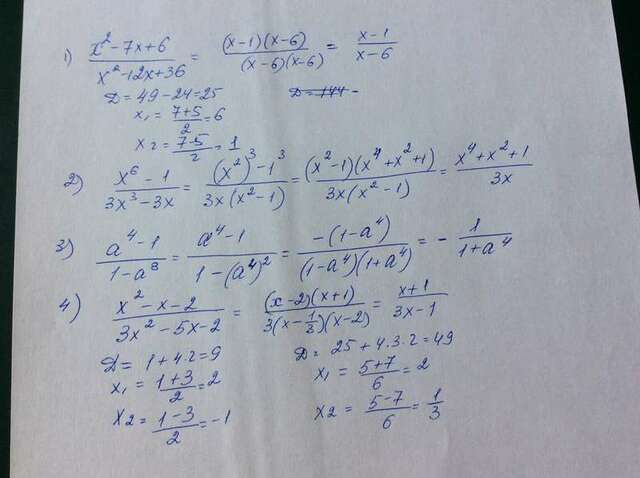 1) (x²-7x+6)/(x²-12x+36) = ((x-1)(x-6))/((x-6)(x-6)) = (x-1)/(x-6)
D = 49-24=25 D=144-
x₁ = (7+5)/2 = 6
x₂ = (7-5)/2 = 1
2) (x⁶-1)/(3x³-3x) = ((x²)³-1³)/(3x(x²-1)) = ((x²-1)(x⁴+x²+1))/(3x(x²-1)) = (x⁴+x²+1)/(3x)
3) (a⁴-1)/(1-a⁸) = (a⁴-1)/(1-(a⁴)²) = (-(1-a⁴))/((1-a⁴)(1+a⁴)) = - 1/(1+a⁴)
4) (x²-x-2)/(3x²-5x-2) = ((x-2)(x+1))/(3(x-1/3)(x-2)) = (x+1)/(3x-1)
D = 1+4·2=9 D = 25+4·3·2=49
x₁ = (1+3)/2 = 2 x₁ = (5+7)/6 = 2
x₂ = (1-3)/2 = -1 x₂ = (5-7)/6 = 1/3